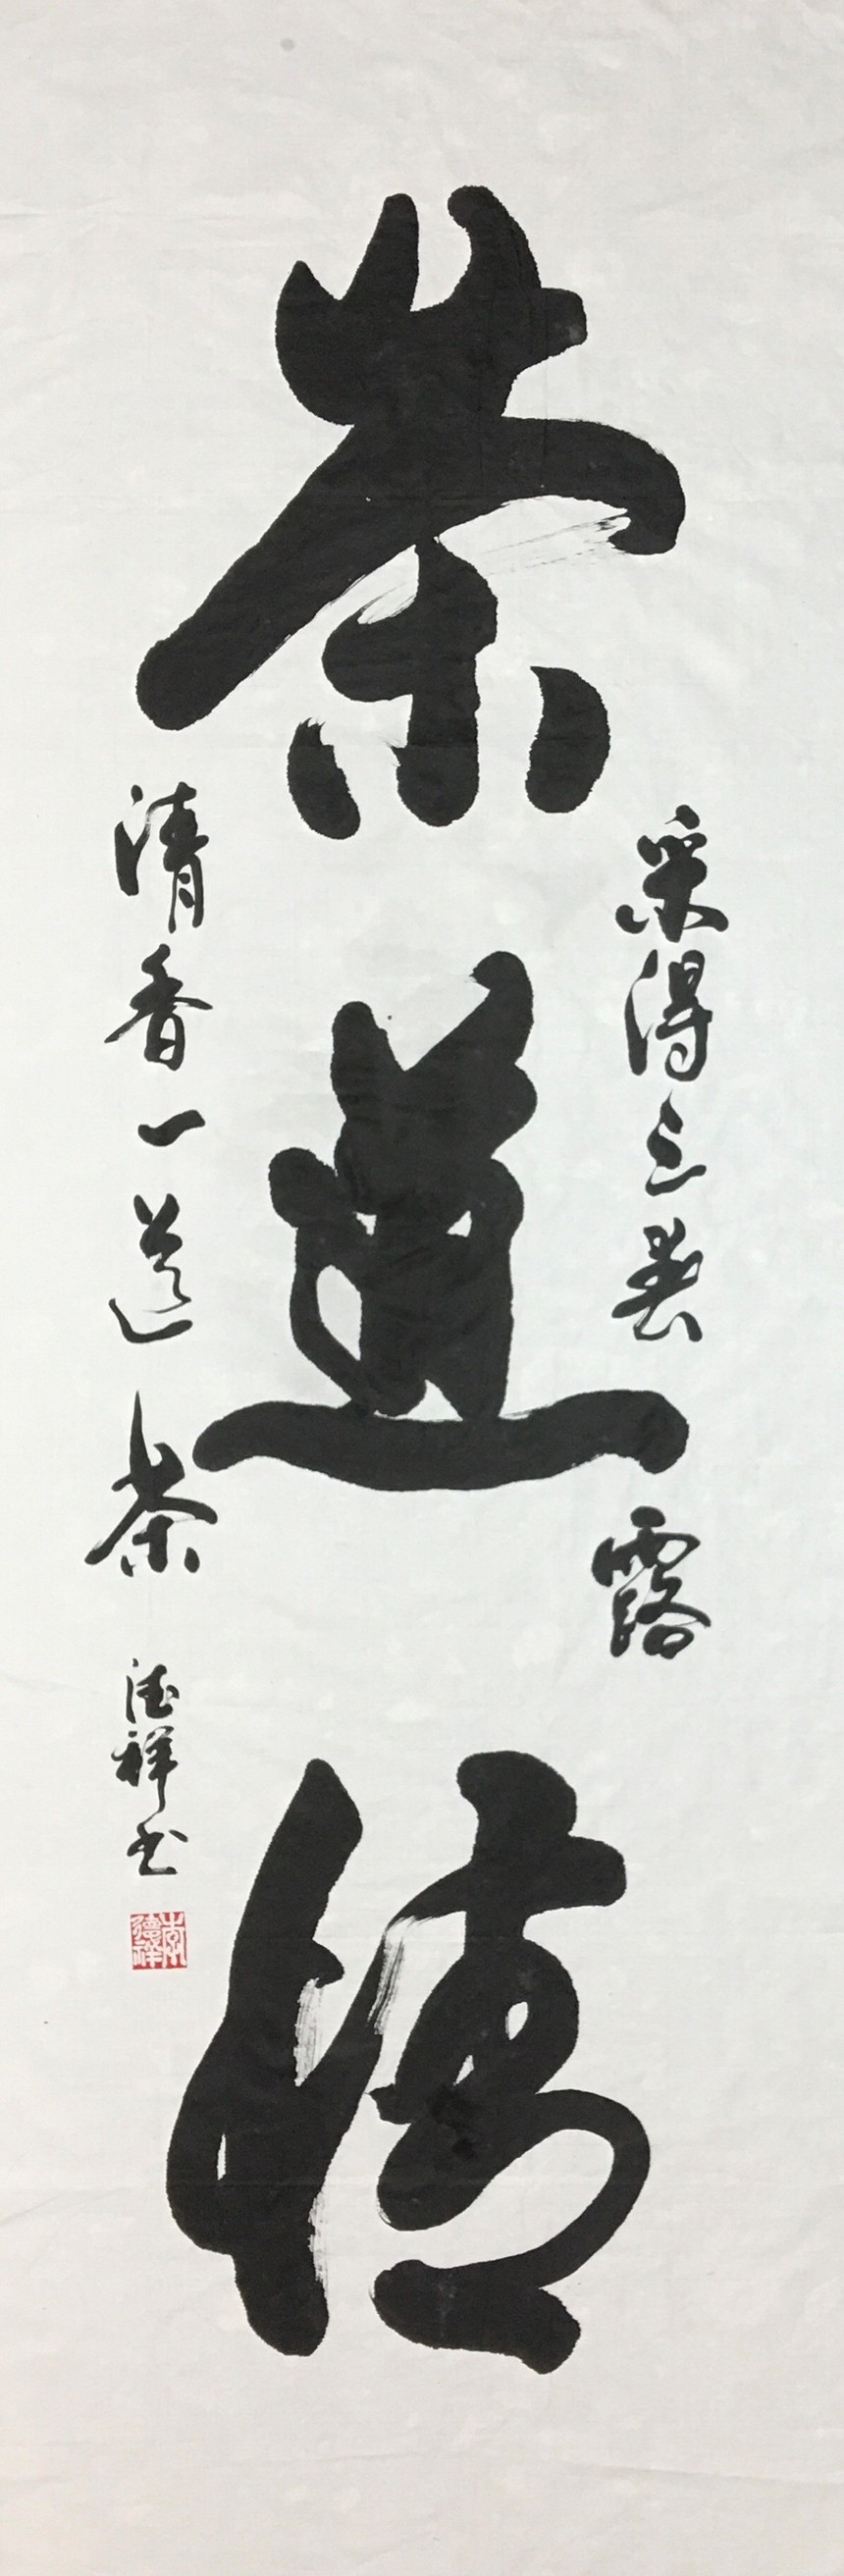 茶道情
采得三春露
清香一道茶
德祥书
李德祥